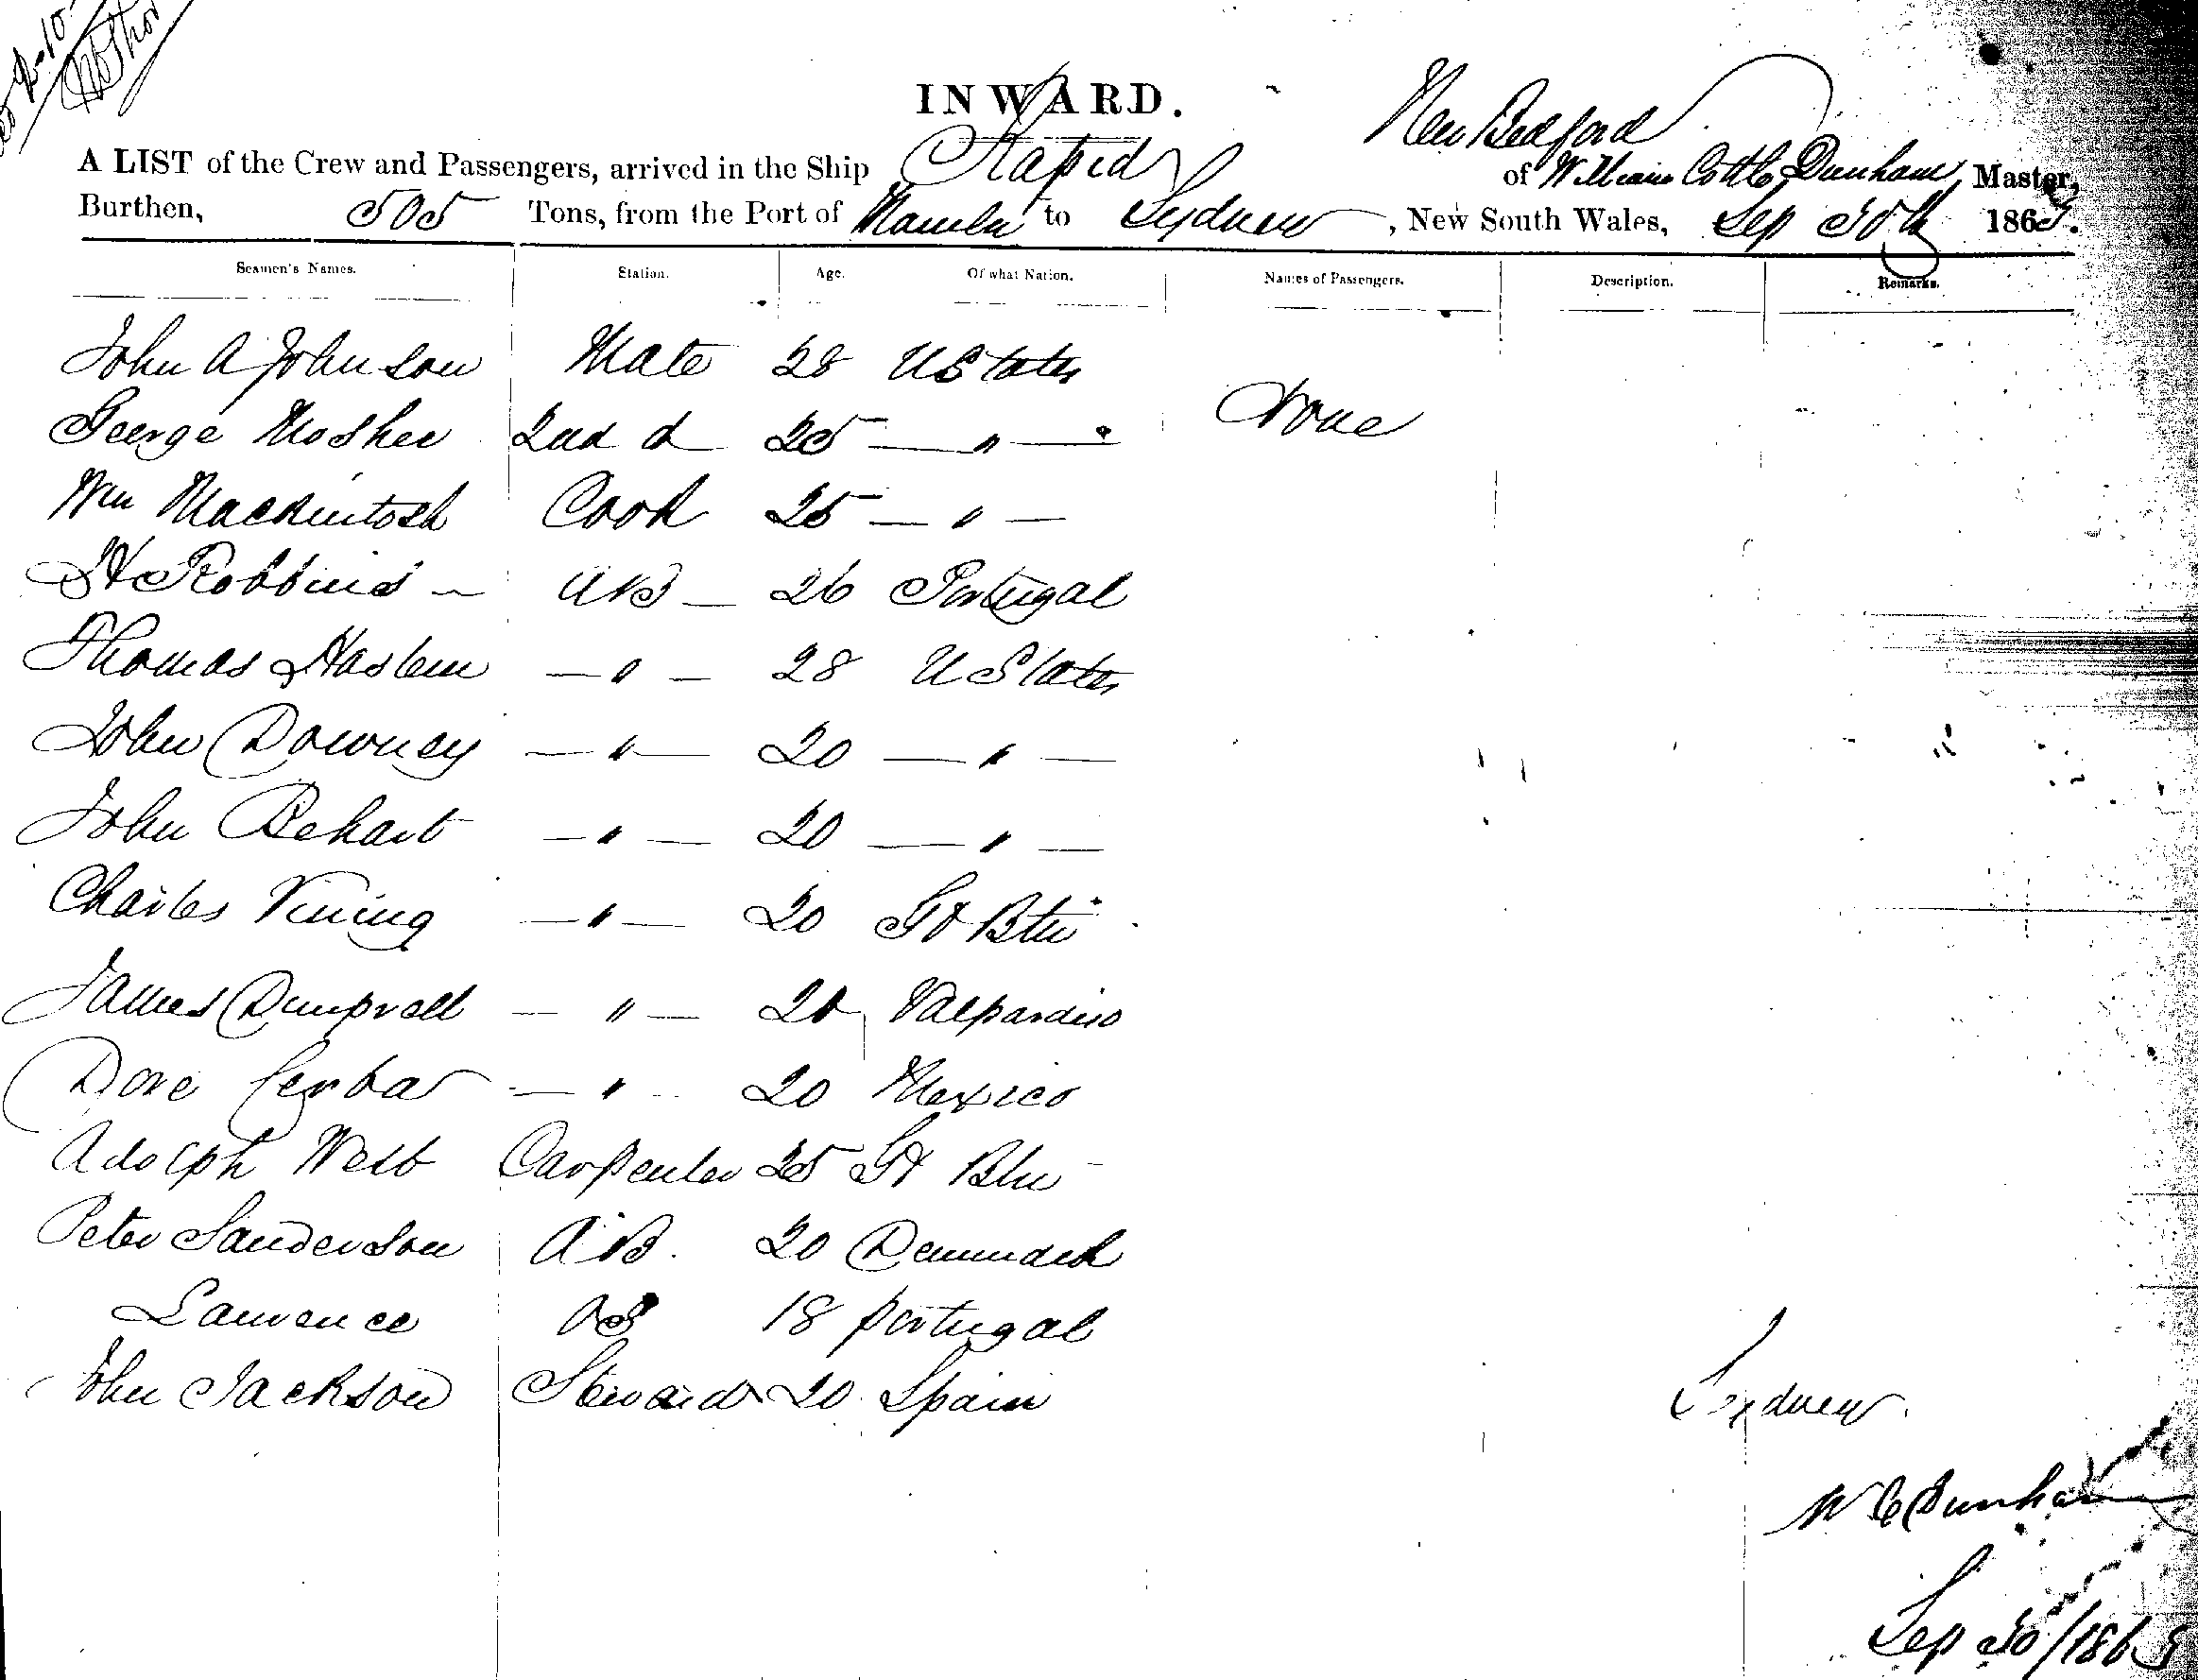 INWARD.
New Bedford
A LIST of the Crew and Passengers, arrived in the Ship Rapid of William Cottle Dunham, Master,
Burthen, 505 Tons, from the Port of Manila to Sydney, New South Wales, Sep 30th 1865.
Seamen's Names. Station. Age. Of what Nation. Names of Passengers. Description. Remarks.
John A Johnson Mate 28 U States
George Mosher 2nd d 25 — " — None
Wm Mackintosh Cook 25 — " —
H Robbins — AB — 26 Portugal
Thomas Haslem — " — 28 U States
John Downey — " — 20 — " —
John Rehart — " — 20 — " —
Charles Vining — " — 20 Gt Btn
James — " — 20 Valparaiso
— " — 20 Mexico
Adolph West Carpenter 25 Gt Btn
Peter Sanderson AB. 20 Denmark
Lawrence OS 18 portugal
John Jackson Steward 20 Spain
Sydney
W C Dunham
Sep 30/1865